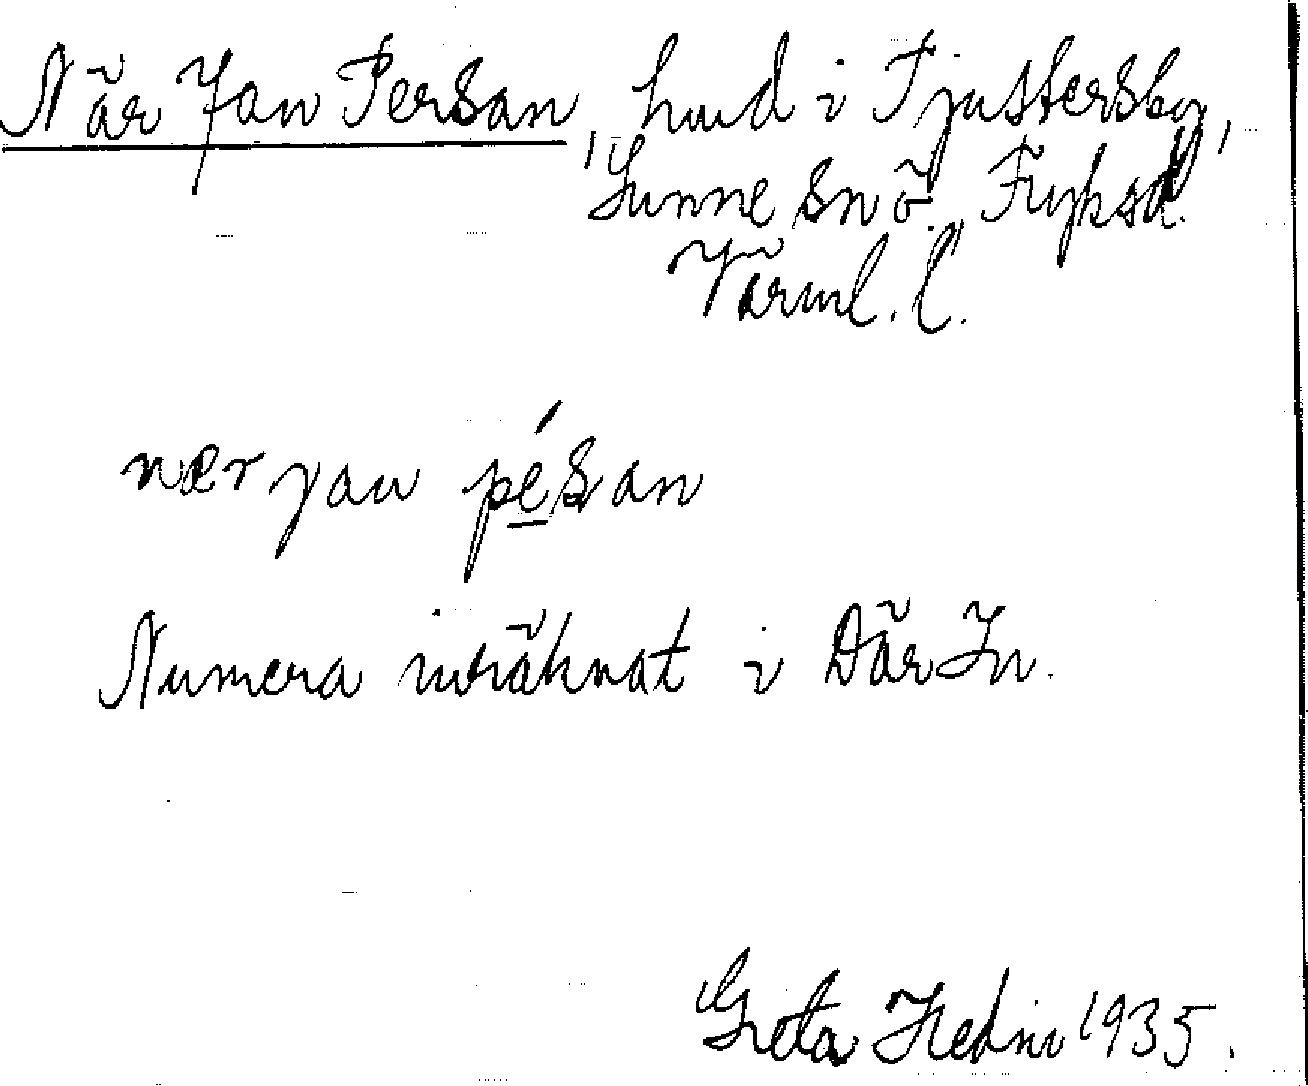 När Jan Persan, hmd i Tjustersby,
Sunne sn ö. Fryksd.
Värml. l.
nær yan pésan
Numera inräknat i Där In.
Greta Hedin 1935.